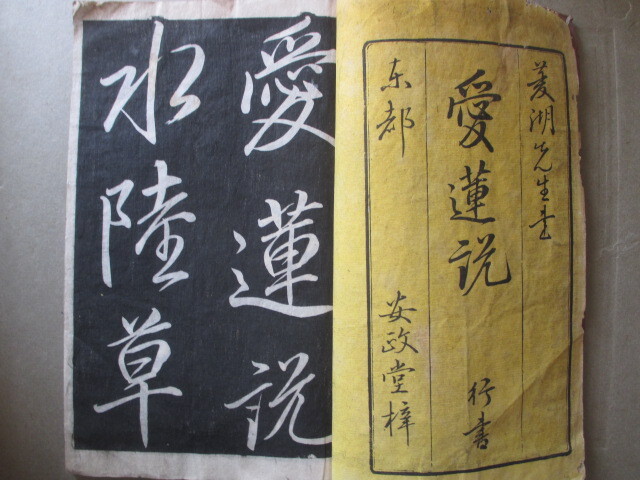 菱湖先生書
愛蓮說 行書
东都 安政堂梓
愛蓮說
水陸草